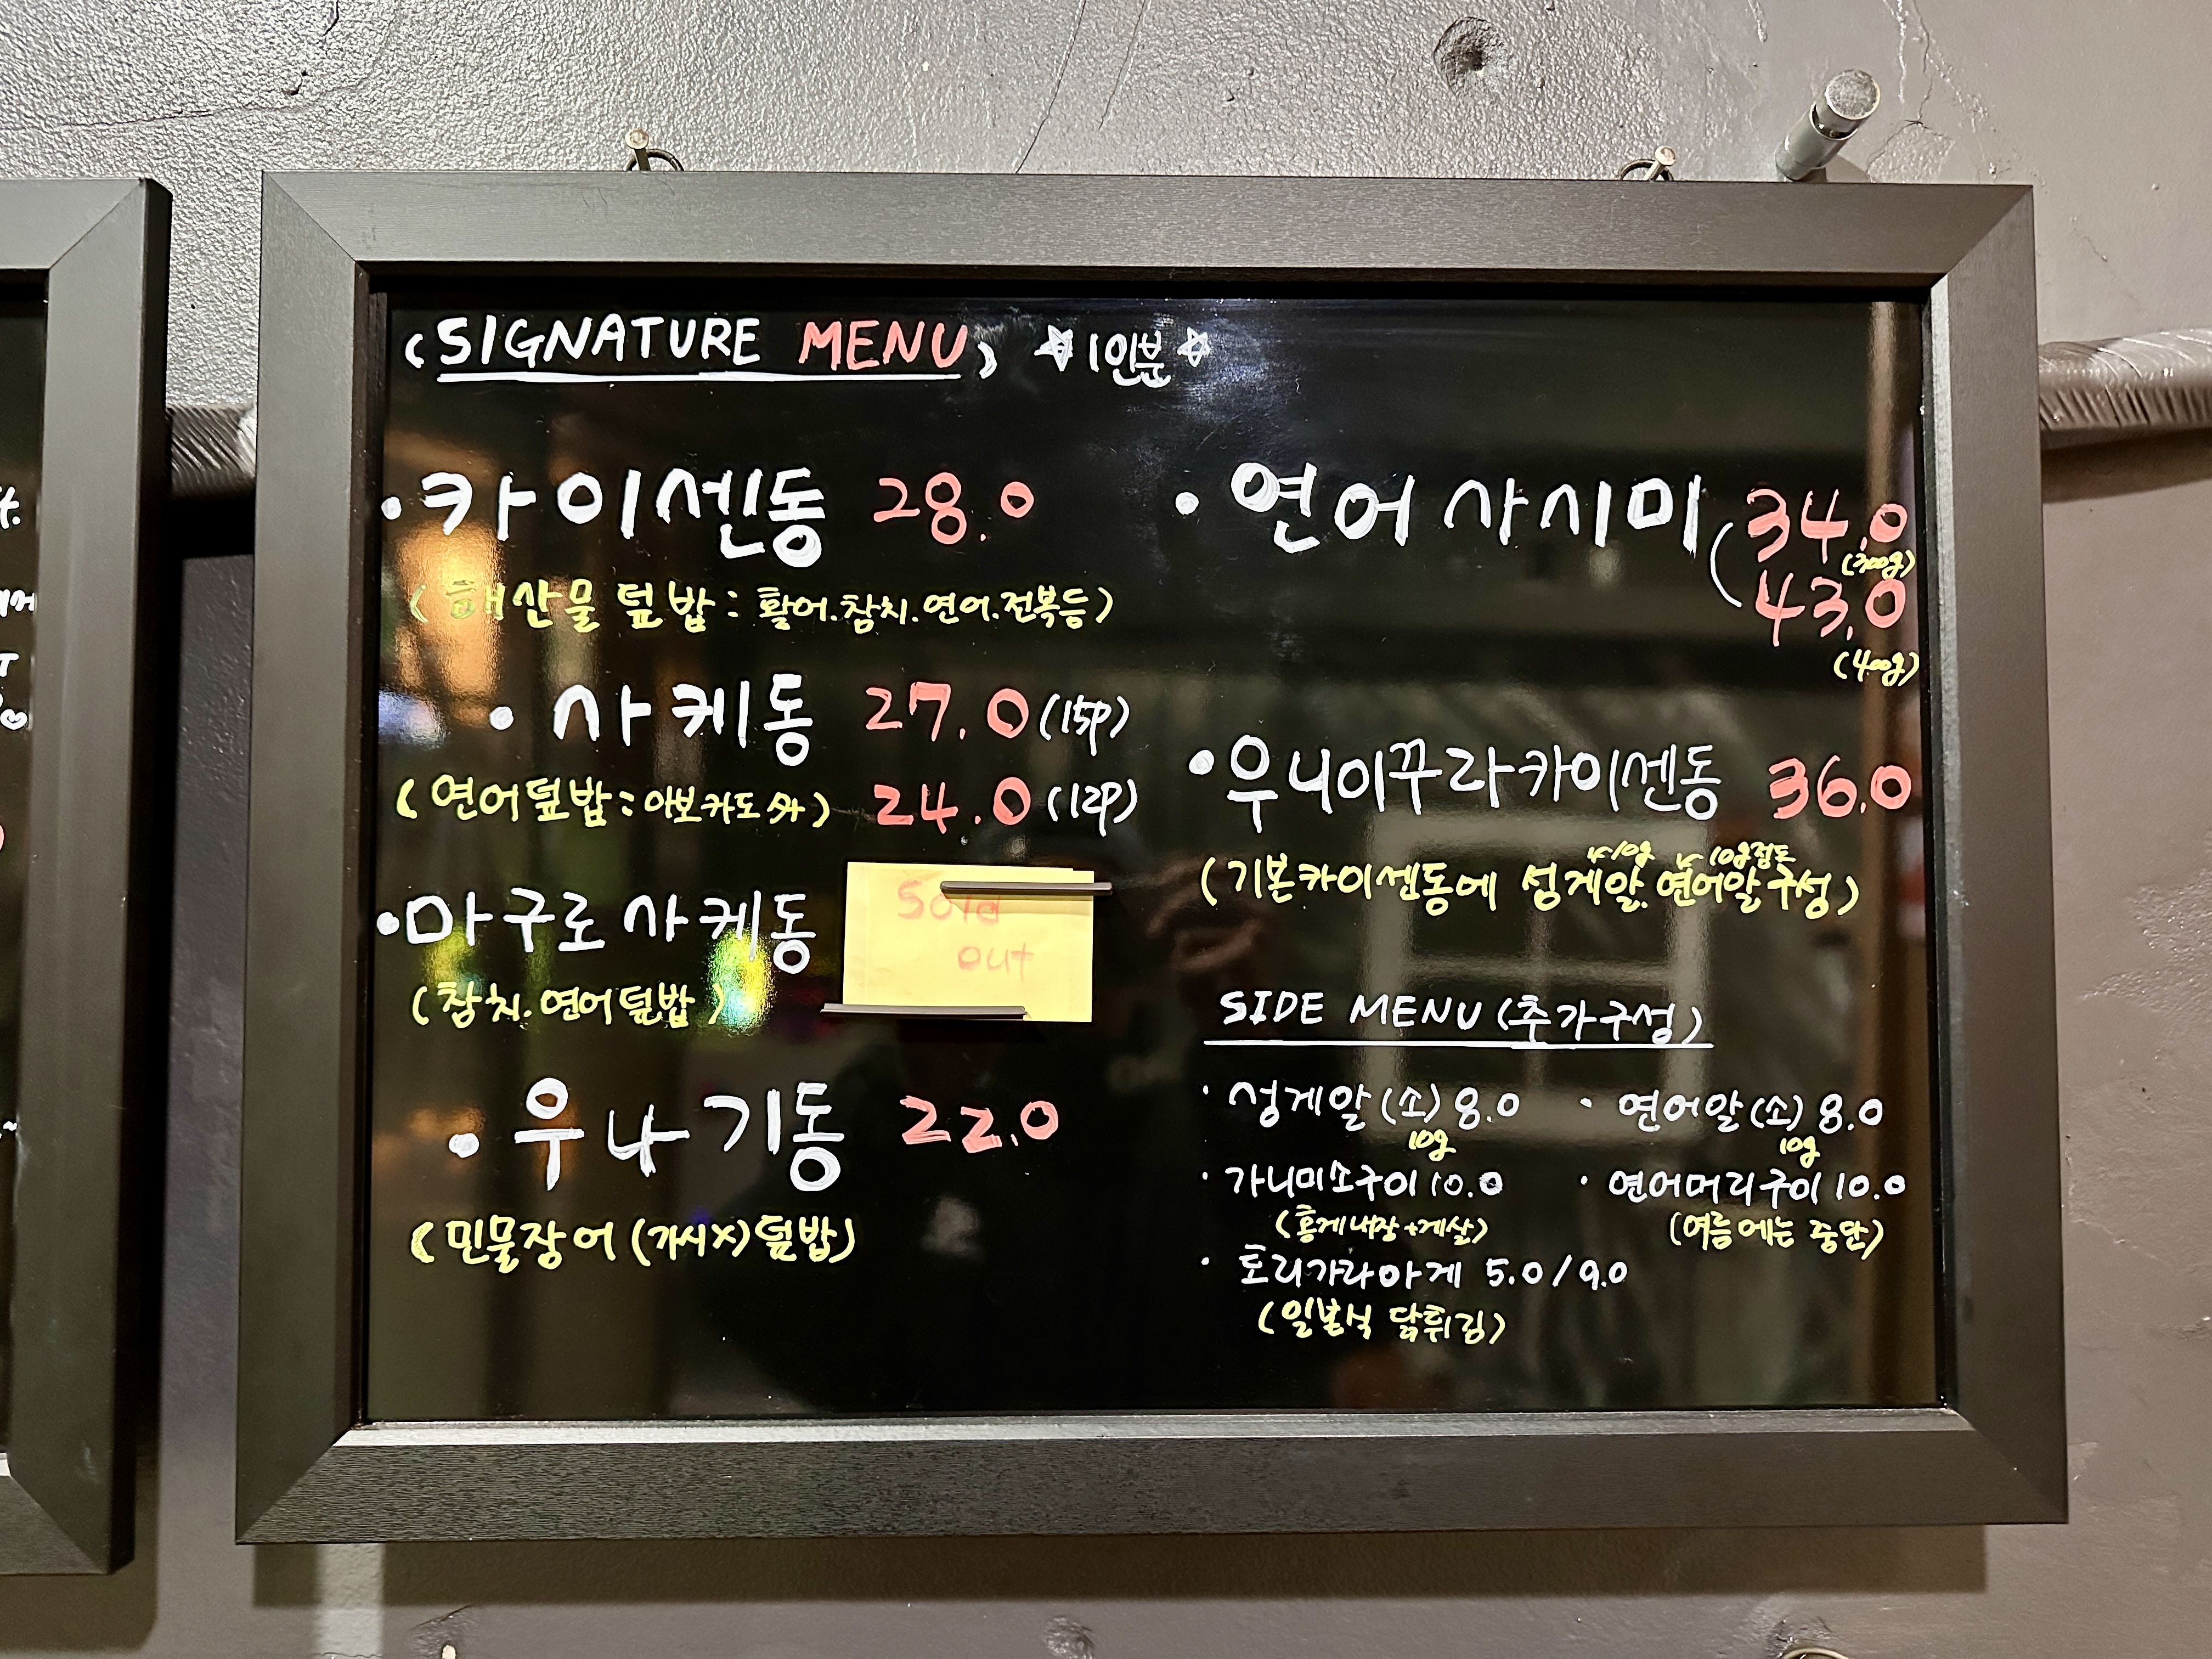 (SIGNATURE MENU) ☆1인분☆
· 카이센동 28.0
(해산물 덮밥 : 활어.참치.연어.전복등)
· 사케동 27.0 (15p)
(연어덮밥 : 아보카도 小) 24.0 (12p)
· 마구로사케동 Sold out
(참치.연어덮밥)
· 우나기동 22.0
(민물장어 (가시X) 덮밥)
· 연어 사시미 34.0
(300g)
43.0
(400g)
· 우니이꾸라카이센동 36.0
10g 10g정도
(기본카이센동에 성게알. 연어알 구성)
SIDE MENU (추가구성)
· 성게알(소) 8.0 · 연어알(소) 8.0
10g 10g
· 가니미소구이 10.0 · 연어머리구이 10.0
(홍게내장+게살) (여름에는 중단)
· 토리가라아게 5.0/9.0
(일본식 닭튀김)